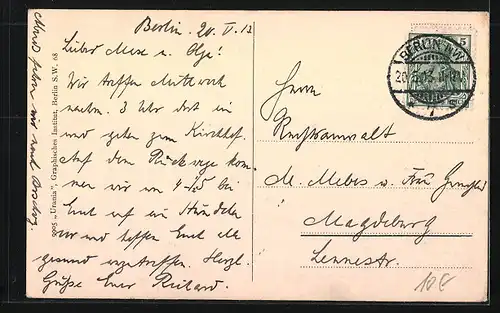 Berlin. 20. V. 13
Lieber Mese u. Olga!
Wir treffen Mittwoch
nachm. 3 Uhr dort ein
und gehen zum Kirchhof.
Auf dem Rückwege kom-
men wir von 4-5 bei
Euch auf ein Stündchen
vor und hoffen Euch
gesund anzutreffen. Herzl.
Grüße Euer Richard.
fahren wir nach
9995 "Urania", Graphisches Institut, Berlin S.W. 68
5
BERLIN N.W.
20.5.13
7
Herrn
Rechtsanwalt
M. Mebes u. Frau
Magdeburg
Lennéstr.
10.€